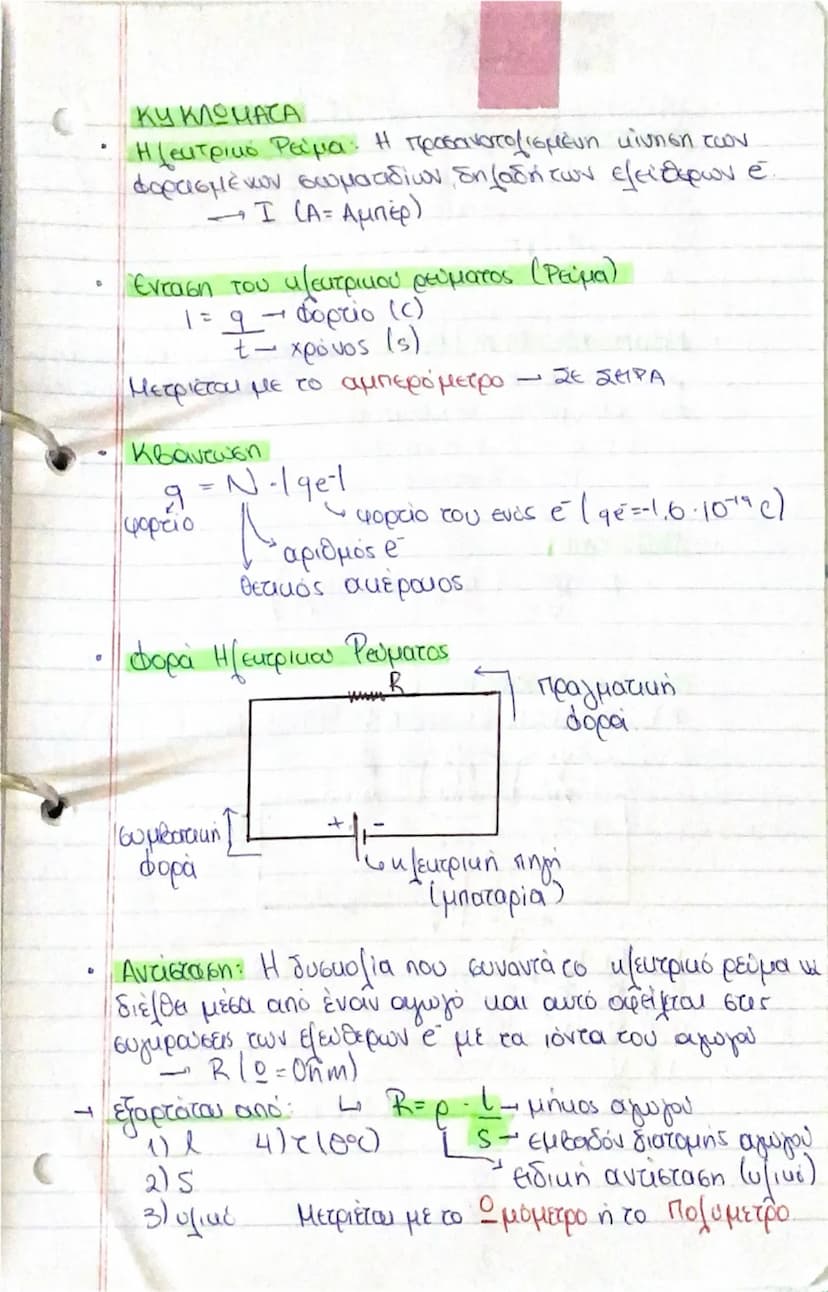 ΚΥΚΛΩΜΑΤΑ
• Ηλεκτρικό Ρεύμα: Η προσανατολισμένη κίνηση των
φορτισμένων σωματιδίων, δηλαδή των ελεύθερων e⁻
→ I (A = Αμπέρ)
• Ένταση του ηλεκτρικού ρεύματος (Ρεύμα)
I = q → Φορτίο (C)
t → χρόνος (s)
Μετριέται με το αμπερόμετρο → ΣΕ ΣΕΙΡΑ
• Κβάντωση
q = N · |qe⁻|
φορτίο
φορτίο του ενός e⁻ (qe⁻ = -1,6 · 10⁻¹⁹ C)
αριθμός e⁻
θετικός ακέραιος
• Φορά Ηλεκτρικού Ρεύματος
R
πραγματική
φορά
συμβατική
φορά
+ -
ηλεκτρική πηγή
(μπαταρία)
• Αντίσταση: Η δυσκολία που συναντά το ηλεκτρικό ρεύμα να
διέλθει μέσα από έναν αγωγό και αυτό οφείλεται στις
συγκρούσεις των ελεύθερων e⁻ με τα ιόντα του αγωγού
→ R (Ω = Ohm)
→ εξαρτάται από: ↳ R = ρ · l → μήκος αγωγού
1) l 4) τ (θ°C) S → εμβαδόν διατομής αγωγού
2) S ειδική αντίσταση (υλικό)
3) υλικό Μετριέται με το Ωμόμετρο ή το Πολύμετρο